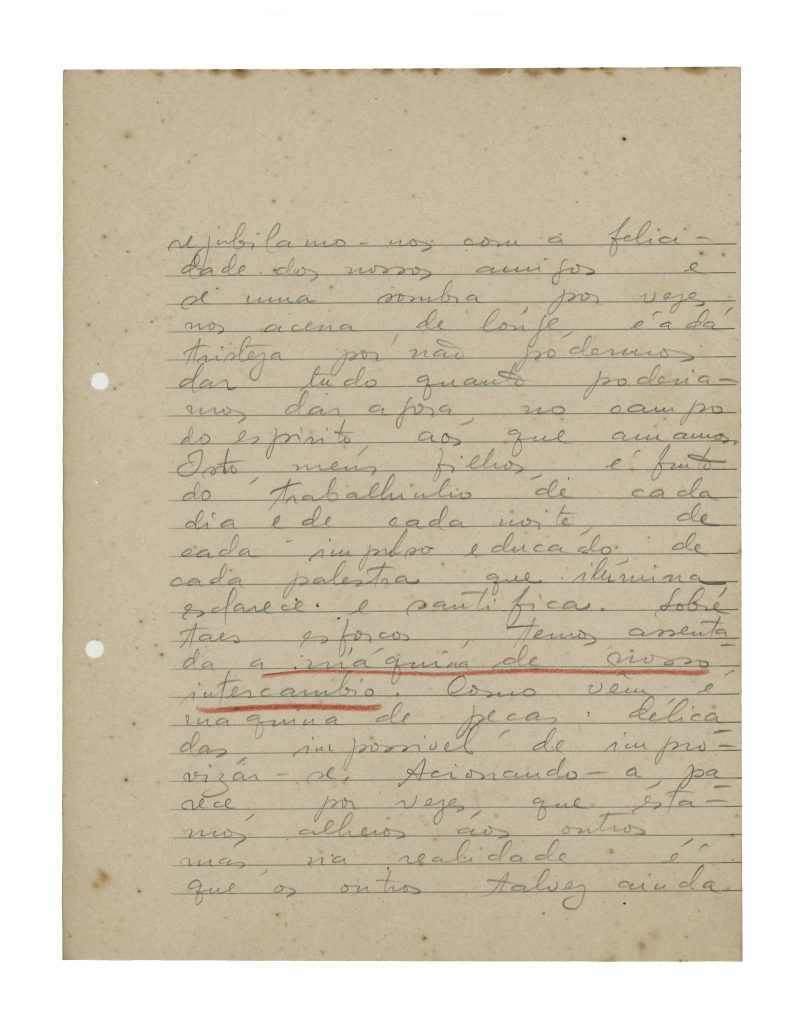 rejubilamo-nos com a felici-
dade dos nossos amigos e
se uma sombra por vezes
nos acena de longe, é a da
tristeza por não podermos
dar tudo quanto poderia-
mos dar agora, no campo
do espirito, aos que amamos.
Isto, meus filhos, é fruto
do trabalhinho de cada
dia e de cada noite, de
cada impulso educado, de
cada palestra que ilumina
esclarece e santifica. Sobre
taes esforços, temos assenta-
da a máquina de nosso
intercambio. Como vêm é
máquina de peças delica
das impossivel de impro-
vizár-se. Acionando-a, pa
rece, por vezes, que esta-
mos alheios aos outros,
mas na realidade é
que os outros talvez ainda